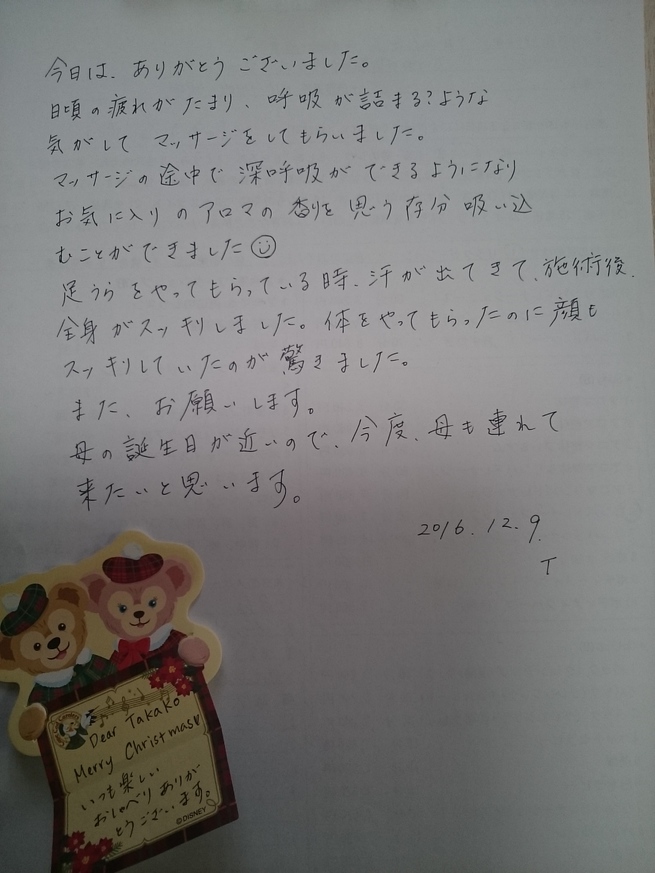 今日は、ありがとうございました。
日頃の疲れがたまり、呼吸が詰まる?ような
気がしてマッサージをしてもらいました。
マッサージの途中で深呼吸ができるようになり
お気に入りのアロマの香りを思う存分吸い込
むことができました☺
足うらをやってもらっている時、汗が出てきて、施術後、
全身がスッキリしました。体をやってもらったのに顔も
スッキリしていたのが驚きました。
また、お願いします。
母の誕生日が近いので、今度、母も連れて
来たいと思います。
2016.12.9.
T
Dear Takako
Merry Christmas
いつも楽しい
おしゃべりありが
とうございます。
©DISNEY